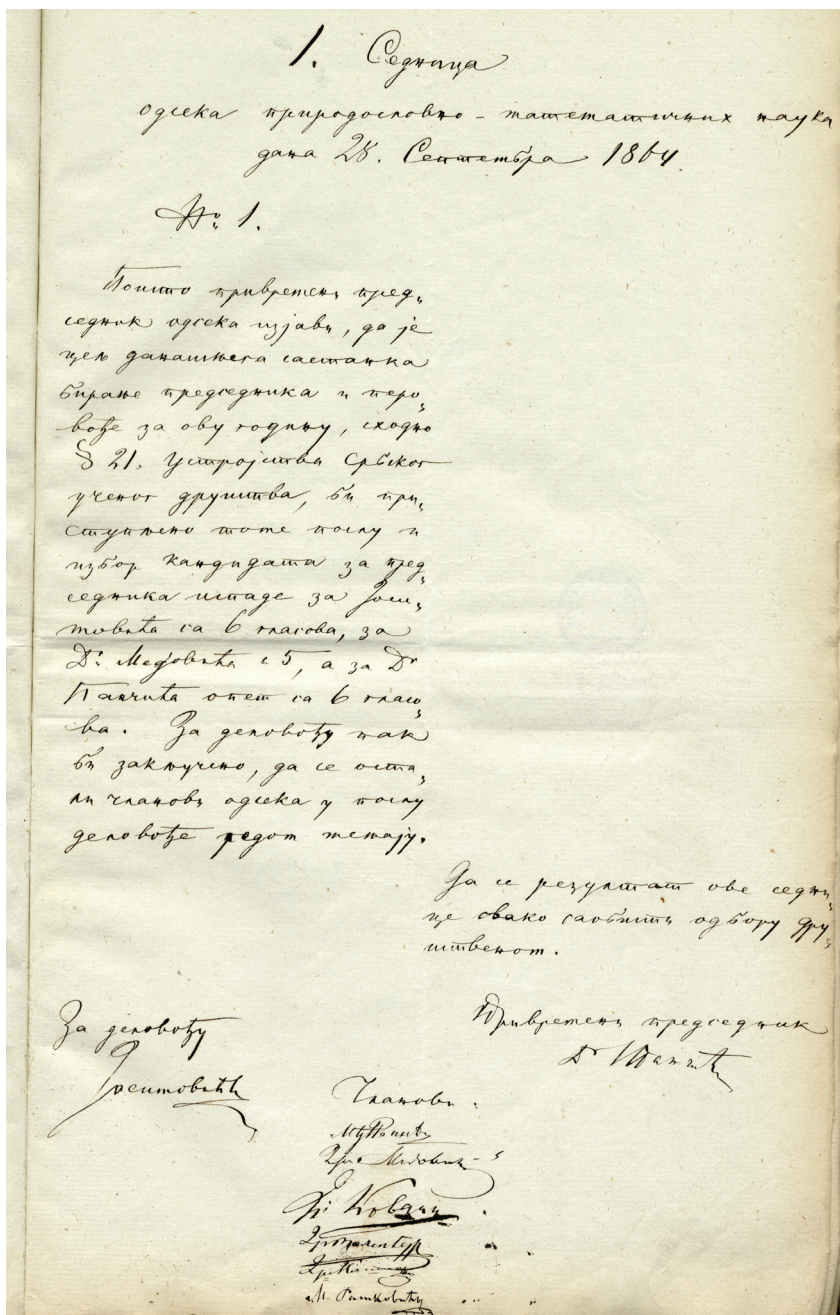 1. Седница
одсека природословно - математичних наука
дана 28. Септембра 1864
№ 1.
Пошто привремени пред„
седник одсека изјави, да је
цељ данашњега састанка
бирање председника и перо„
вође за ову годину, сходно
§ 21. Устројства Србског
ученог друштва, би при„
ступљено томе послу и
избор кандидата за пред„
седника испаде за Јоси„
мовића са 6 гласова, за
Др Медовића с 5, а за Др
Панчића опет са 6 гласо„
ва. За деловођу пак
би закључено, да се оста„
ли чланови одсека у послу
деловође редом мењају.
Да се резултат ове седни„
це овако саобшти одбору дру„
штвеном.
Привремени председник
Др Панчић
За деловођу
Јосимовић
Чланови.
Медовић
Ковач
М. Рашковић